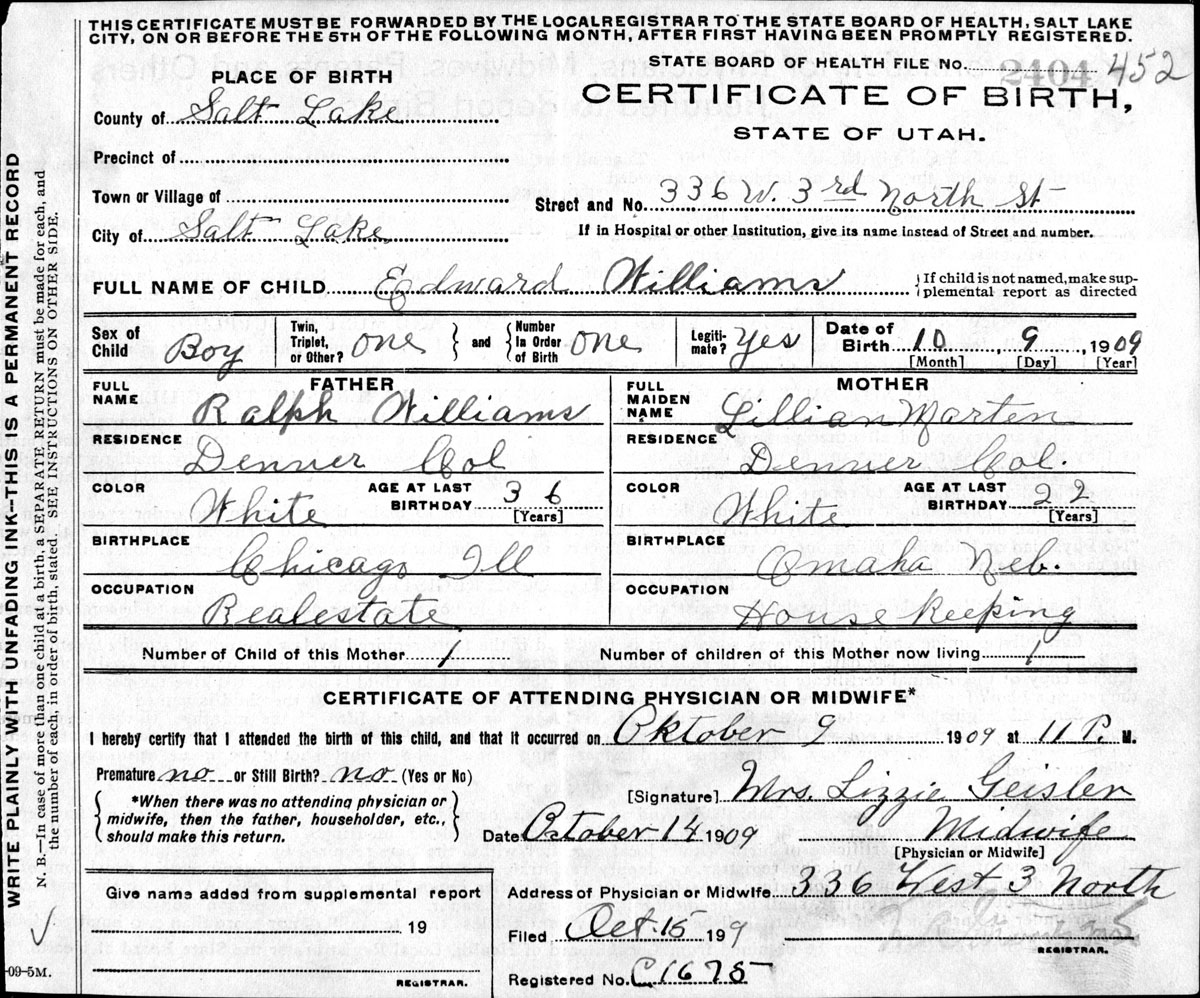 THIS CERTIFICATE MUST BE FORWARDED BY THE LOCALREGISTRAR TO THE STATE BOARD OF HEALTH, SALT LAKE
CITY, ON OR BEFORE THE 5TH OF THE FOLLOWING MONTH, AFTER FIRST HAVING BEEN PROMPTLY REGISTERED.
STATE BOARD OF HEALTH FILE NO. 2404 452
PLACE OF BIRTH
CERTIFICATE OF BIRTH,
STATE OF UTAH.
County of Salt Lake
Precinct of
Town or Village of
Street and No. 336 W. 3rd North St
City of Salt Lake
If in Hospital or other Institution, give its name instead of Street and number.
FULL NAME OF CHILD Edward Williams
If child is not named, make sup-
plemental report as directed
Sex of Child Boy
Twin, Triplet, or Other? one and Number In Order of Birth one
Legiti-mate? Yes
Date of Birth 10 9 1909
[Month] [Day] [Year]
FATHER
FULL NAME Ralph Williams
RESIDENCE Denver Col
COLOR White AGE AT LAST BIRTHDAY 36
[Years]
BIRTHPLACE Chicago Ill
OCCUPATION Realestate
MOTHER
FULL MAIDEN NAME Lillian Marten
RESIDENCE Denver Col.
COLOR White AGE AT LAST BIRTHDAY 22
[Years]
BIRTHPLACE Omaha Neb.
OCCUPATION House Keeping
Number of Child of this Mother 1 Number of children of this Mother now living 1
CERTIFICATE OF ATTENDING PHYSICIAN OR MIDWIFE*
I hereby certify that I attended the birth of this child, and that it occurred on Oktober 9 1909 at 11 P. M.
Premature no or Still Birth? no (Yes or No)
*When there was no attending physician or
midwife, then the father, householder, etc.,
should make this return.
[Signature] Mrs. Lizzie Geisler
Date October 14 1909 Midwife
[Physician or Midwife]
Give name added from supplemental report
19
REGISTRAR.
Address of Physician or Midwife 336 West 3 North
Filed Oct. 15 199
REGISTRAR.
Registered No. C1675
WRITE PLAINLY WITH UNFADING INK--THIS IS A PERMANENT RECORD
N. B.—In case of more than one child at a birth, a SEPARATE RETURN must be made for each, and
the number of each, in order of birth, stated. SEE INSTRUCTIONS ON OTHER SIDE.
-09-5M.